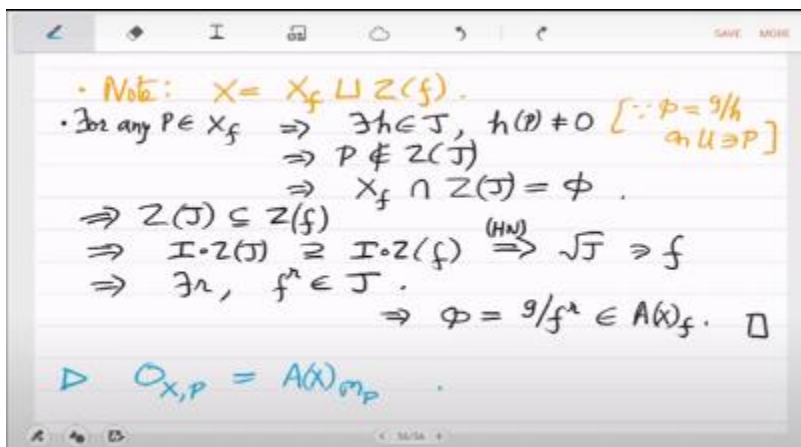 SAVE MORE
• Note: X = X_f ⊔ Z(f).
• For any P ∈ X_f ⇒ ∃h ∈ J, h(P) ≠ 0 [∵ φ = g/h
on U ∋ P]
⇒ P ∉ Z(J)
⇒ X_f ∩ Z(J) = ϕ.
⇒ Z(J) ⊆ Z(f)
⇒ I∘Z(J) ⊇ I∘Z(f) (HN) ⇒ √J ∋ f
⇒ ∃r, f^r ∈ J.
⇒ φ = g/f^r ∈ A(X)_f. □
▷ O_{X,P} = A(X)_{m_P}.